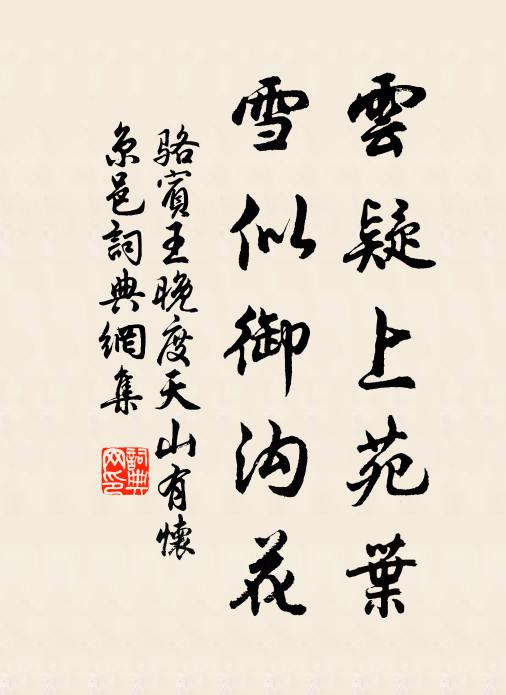 雲疑上苑葉
雪似御沟花
骆賓王晚度天山有懷
京邑詞典網集
詞典网印